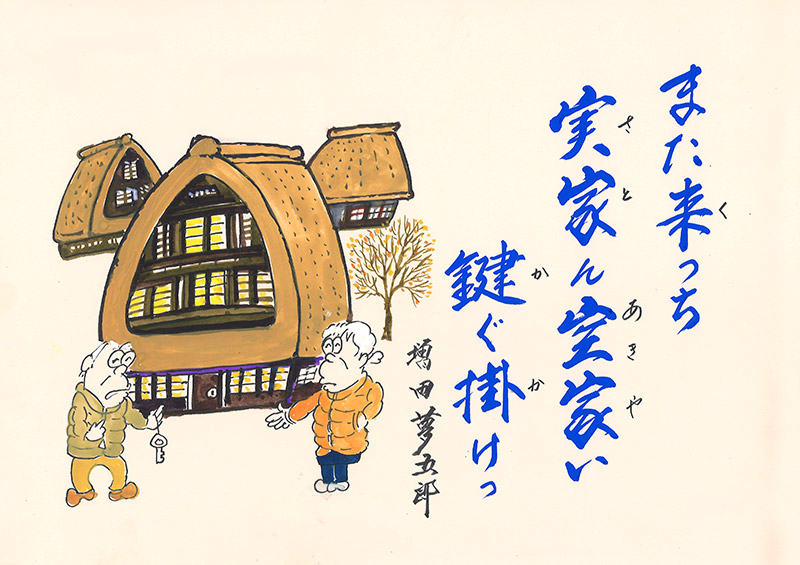 また来っち
く
実家ん空家い
さと
あきや
鍵ぐ掛けっ
か
か
増田夢五郎